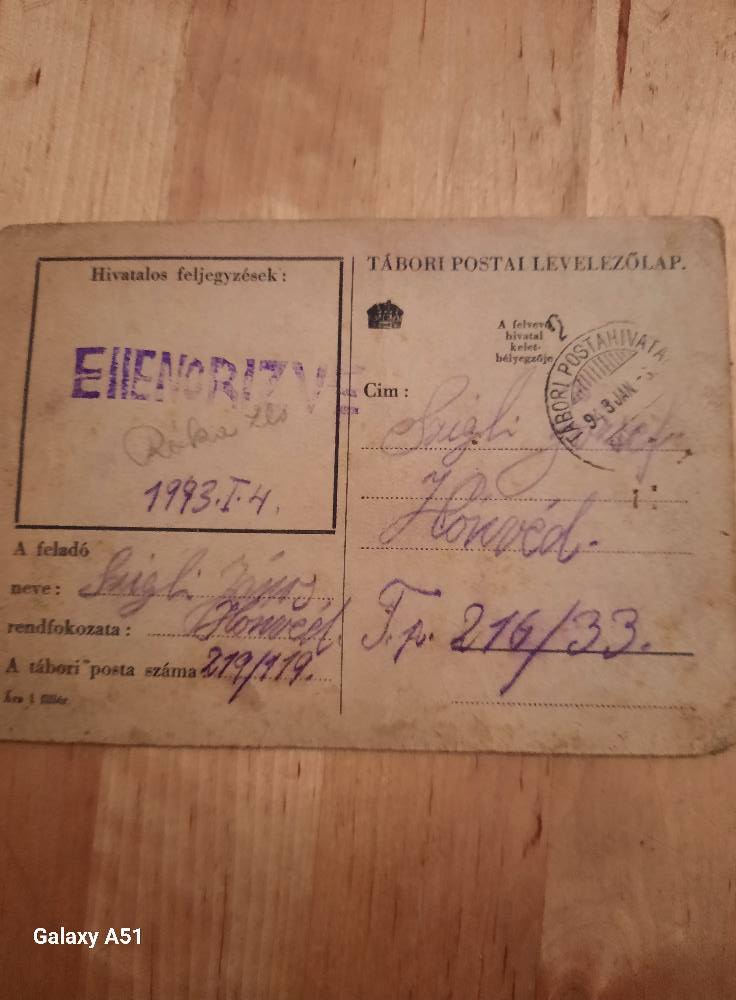 Hivatalos feljegyzések:
ELLENŐRIZVE
Róka
1943.I.4.
A feladó
neve: Szigli János
rendfokozata: Honvéd.
A tábori posta száma 219/119.
Ára 1 fillér
TÁBORI POSTAI LEVELEZŐLAP.
A felvevő
hivatal
kelet-
bélyegzője
TÁBORI POSTAHIVATAL
943 JAN
Cim:
Szigli József
Honvéd.
T.p. 216/33.
Galaxy A51